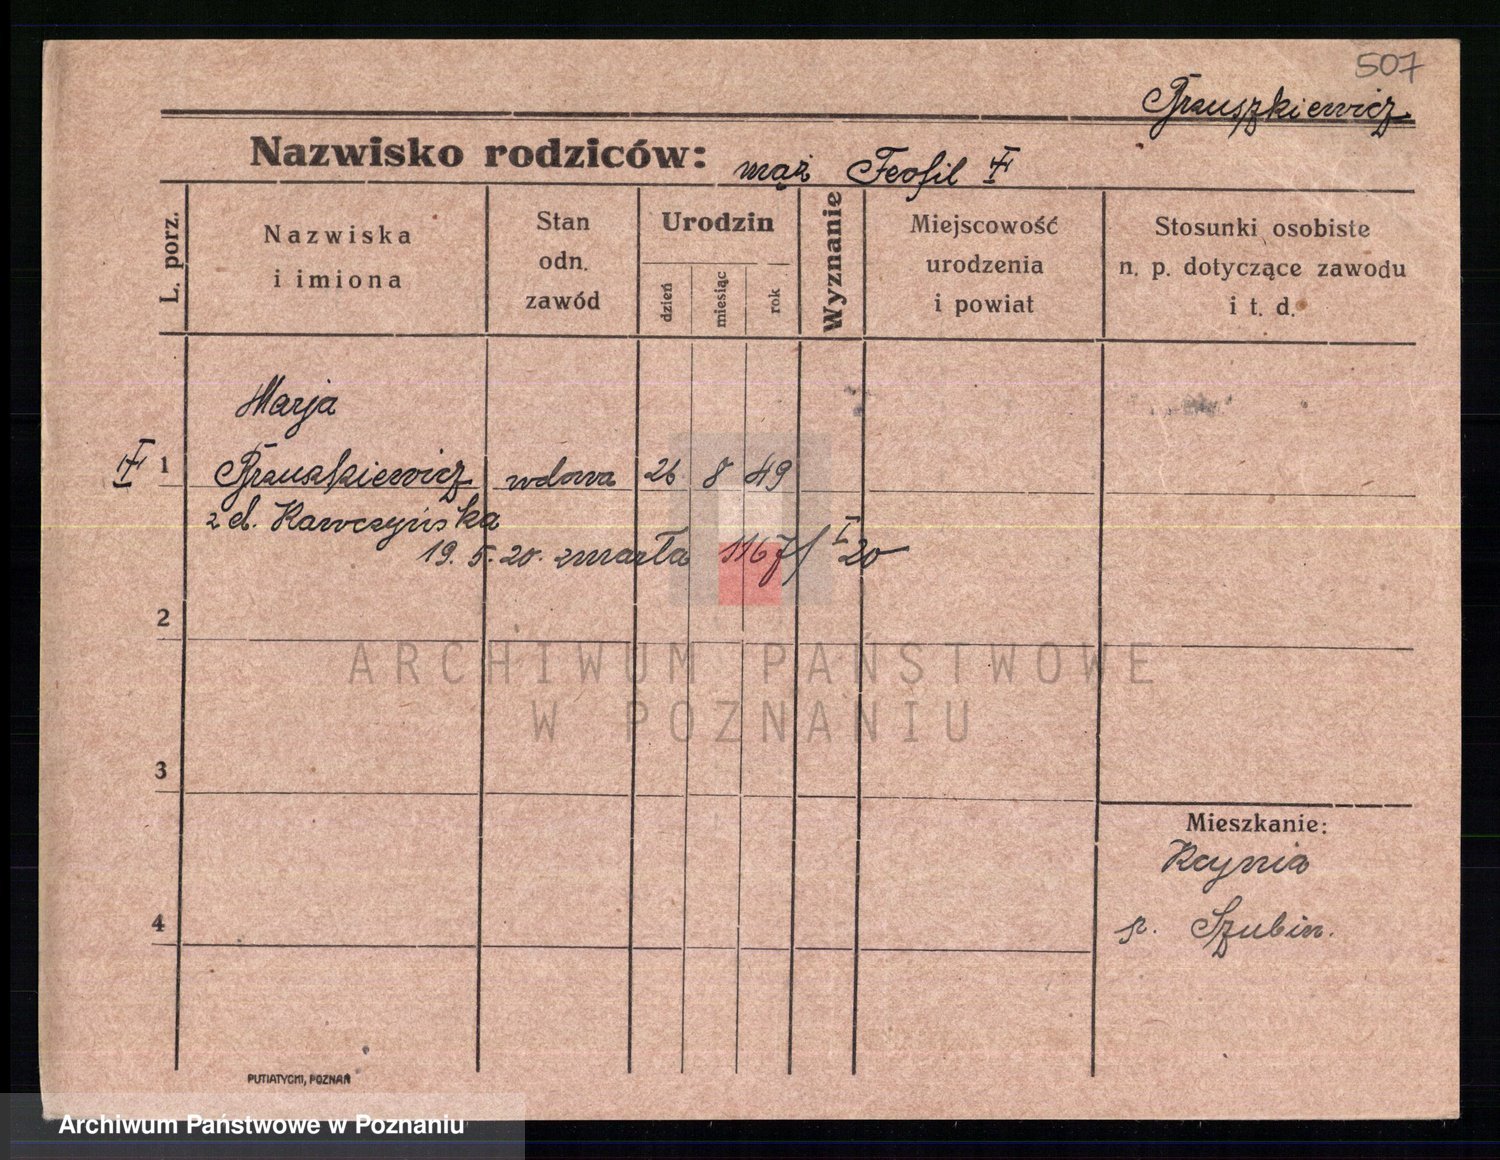 507
Grauszkiewicz
Nazwisko rodziców: mąż Teofil
L. porz.
Nazwiska i imiona
Stan odn. zawód
Urodzin
dzień
miesiąc
rok
Wyznanie
Miejscowość urodzenia i powiat
Stosunki osobiste n. p. dotyczące zawodu i t. d.
Marja
1 Grauszkiewicz wdowa 26 8 49
z d. Kawczyńska
19. 5. 20. zmarła 1167/I 20
2
ARCHIWUM PAŃSTWOWE
W POZNANIU
3
Mieszkanie:
Kcynia
4
p. Szubin.
PUTIATYCKI, POZNAŃ
Archiwum Państwowe w Poznaniu